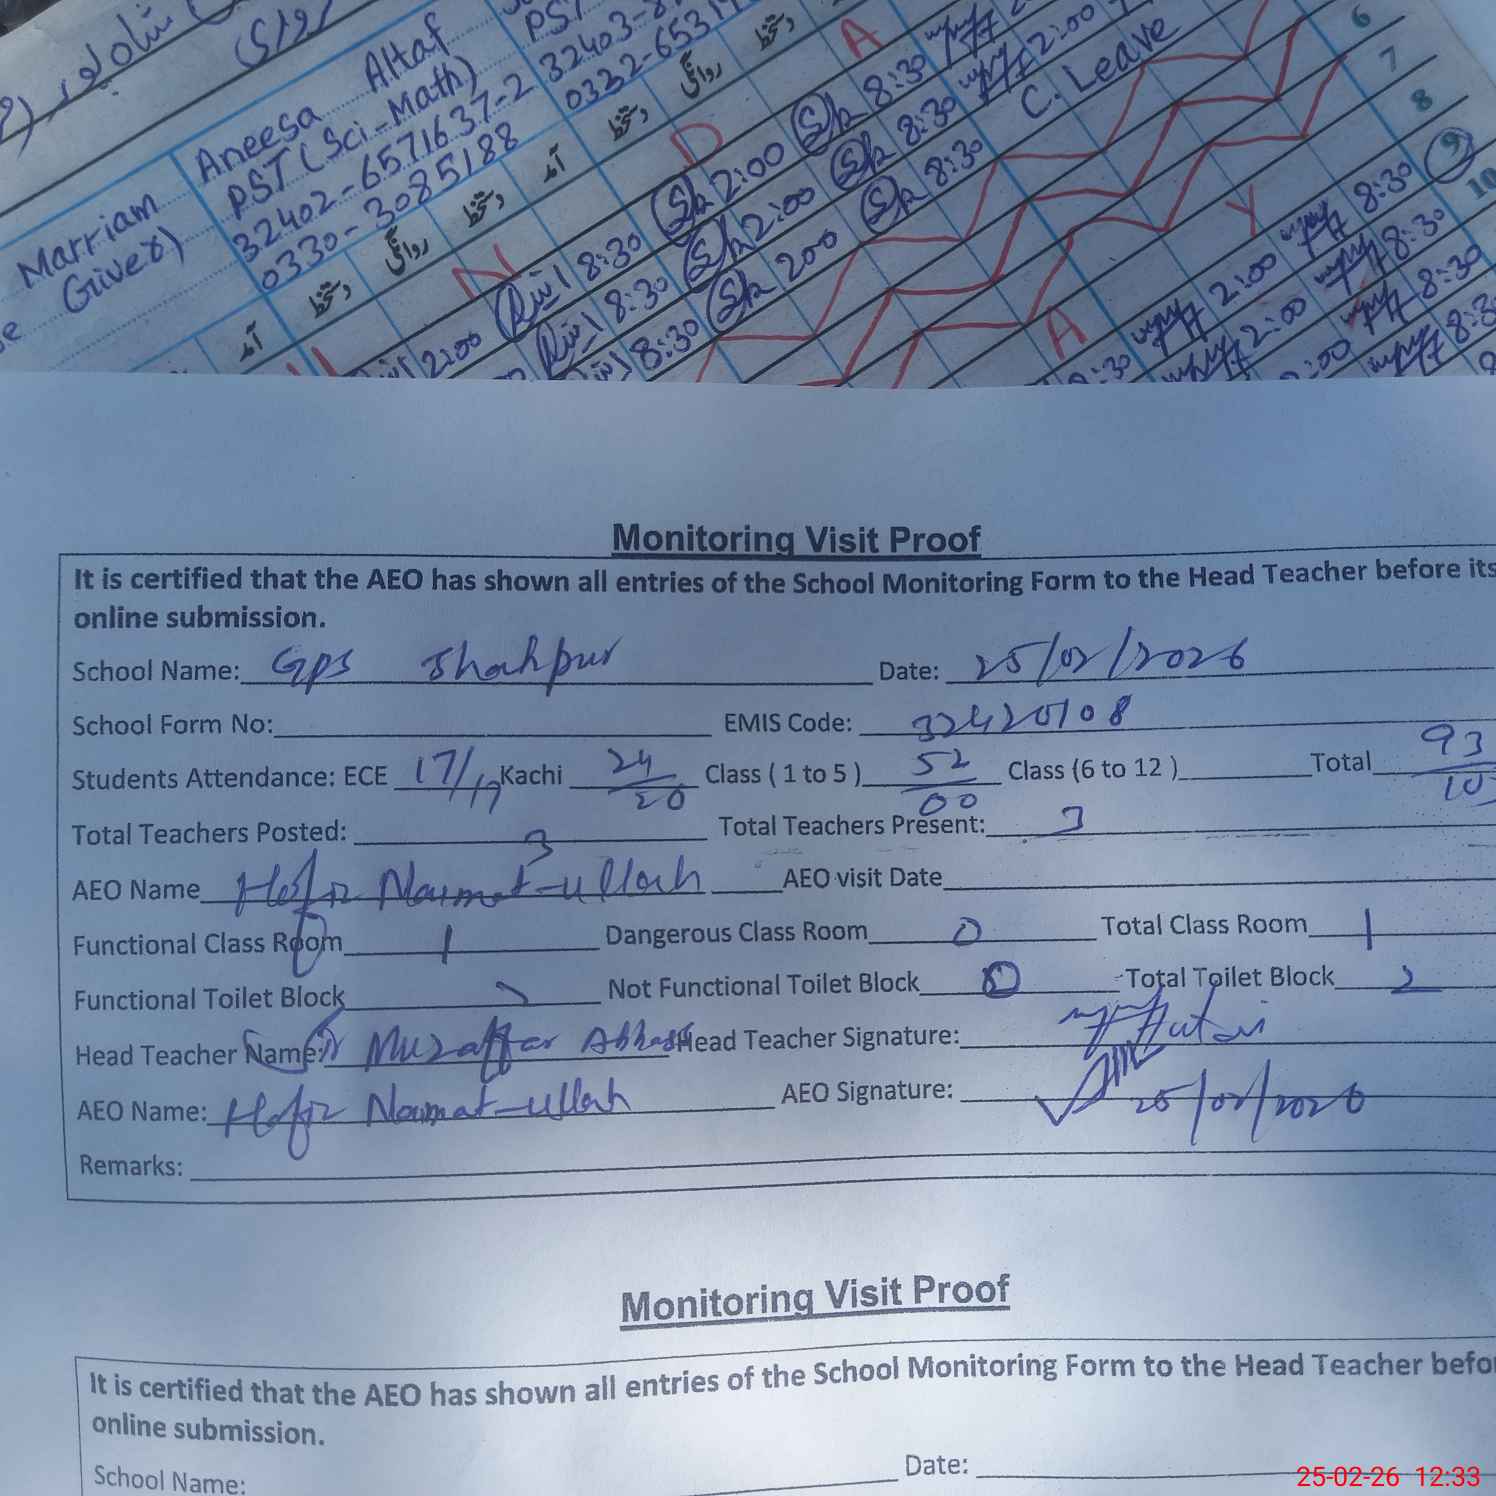 Marriam
Giver)
Aneesa Altaf
PST (Sci-Math)
32402-6571637-2
0330-3085188
32403-8
0332-6531
آمد دستخط روانگی دستخط آمد دستخط روانگی دستخط
N D A
2:00 8:30 2:00 8:30
8:30 2:00 8:30 2:00
8:30 200 8:30 C. Leave
6
7
8
9
10
A Y
2:00 8:30
8:30 2:00 8:30
2:00 8:30
Monitoring Visit Proof
It is certified that the AEO has shown all entries of the School Monitoring Form to the Head Teacher before its
online submission.
School Name: GPS Shahpur Date: 25/02/2026
School Form No: EMIS Code: 32420108
Students Attendance: ECE 17/17 Kachi 24/20 Class ( 1 to 5 ) 52/00 Class (6 to 12 ) Total 93/10
Total Teachers Posted: 3 Total Teachers Present: 3
AEO Name Hafiz Naumat-ullah AEO visit Date
Functional Class Room 1 Dangerous Class Room 0 Total Class Room 1
Functional Toilet Block Not Functional Toilet Block 0 Total Toilet Block 2
Head Teacher Name: Muzaffar Abbas Head Teacher Signature:
AEO Name: Hafiz Naumat-ullah AEO Signature: 25/02/2026
Remarks:
Monitoring Visit Proof
It is certified that the AEO has shown all entries of the School Monitoring Form to the Head Teacher befo
online submission.
School Name: Date:
25-02-26 12:33